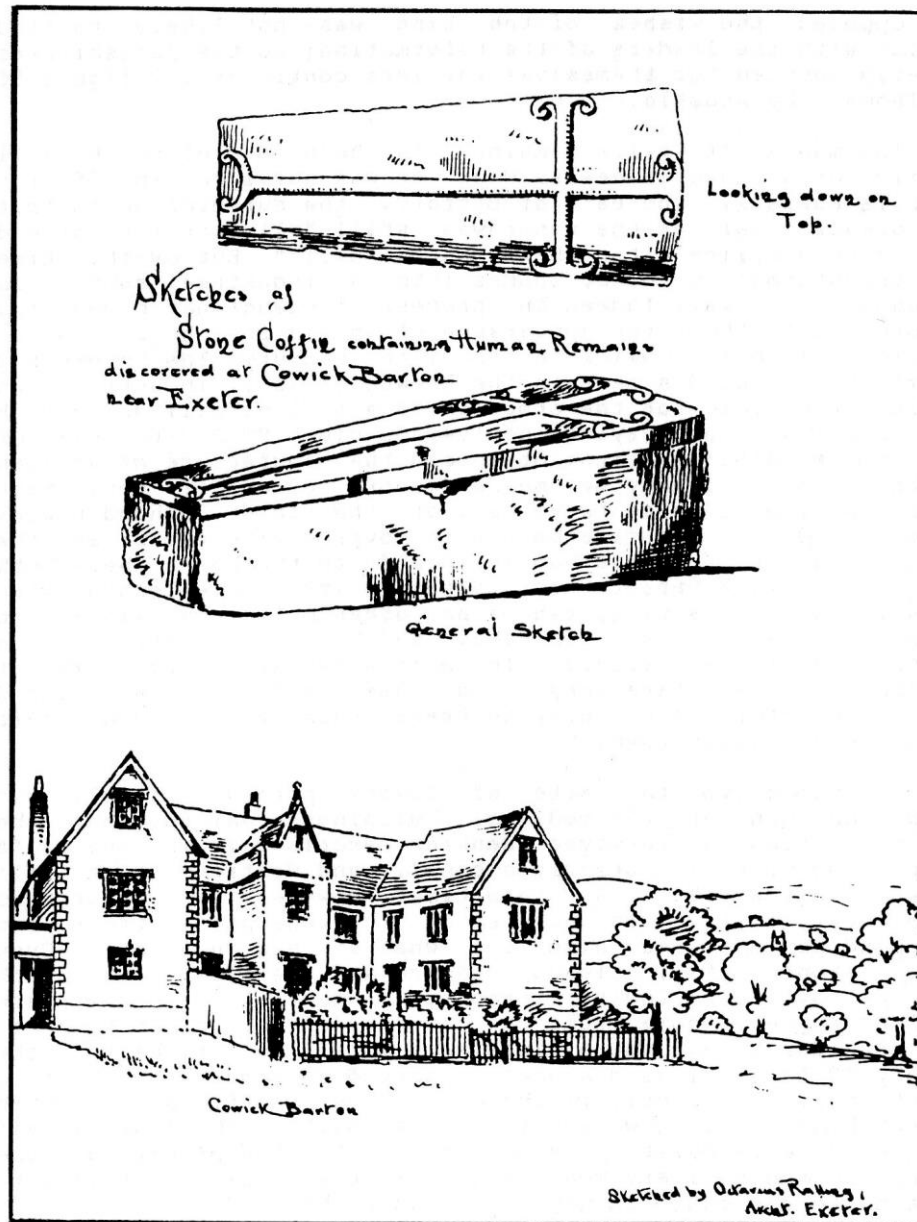 Looking down on
Top.
Sketches of
Stone Coffin containing Human Remains
discovered at Cowick Barton
near Exeter.
General Sketch
Cowick Barton
Sketched by Octavius Ralling,
Archt. Exeter.